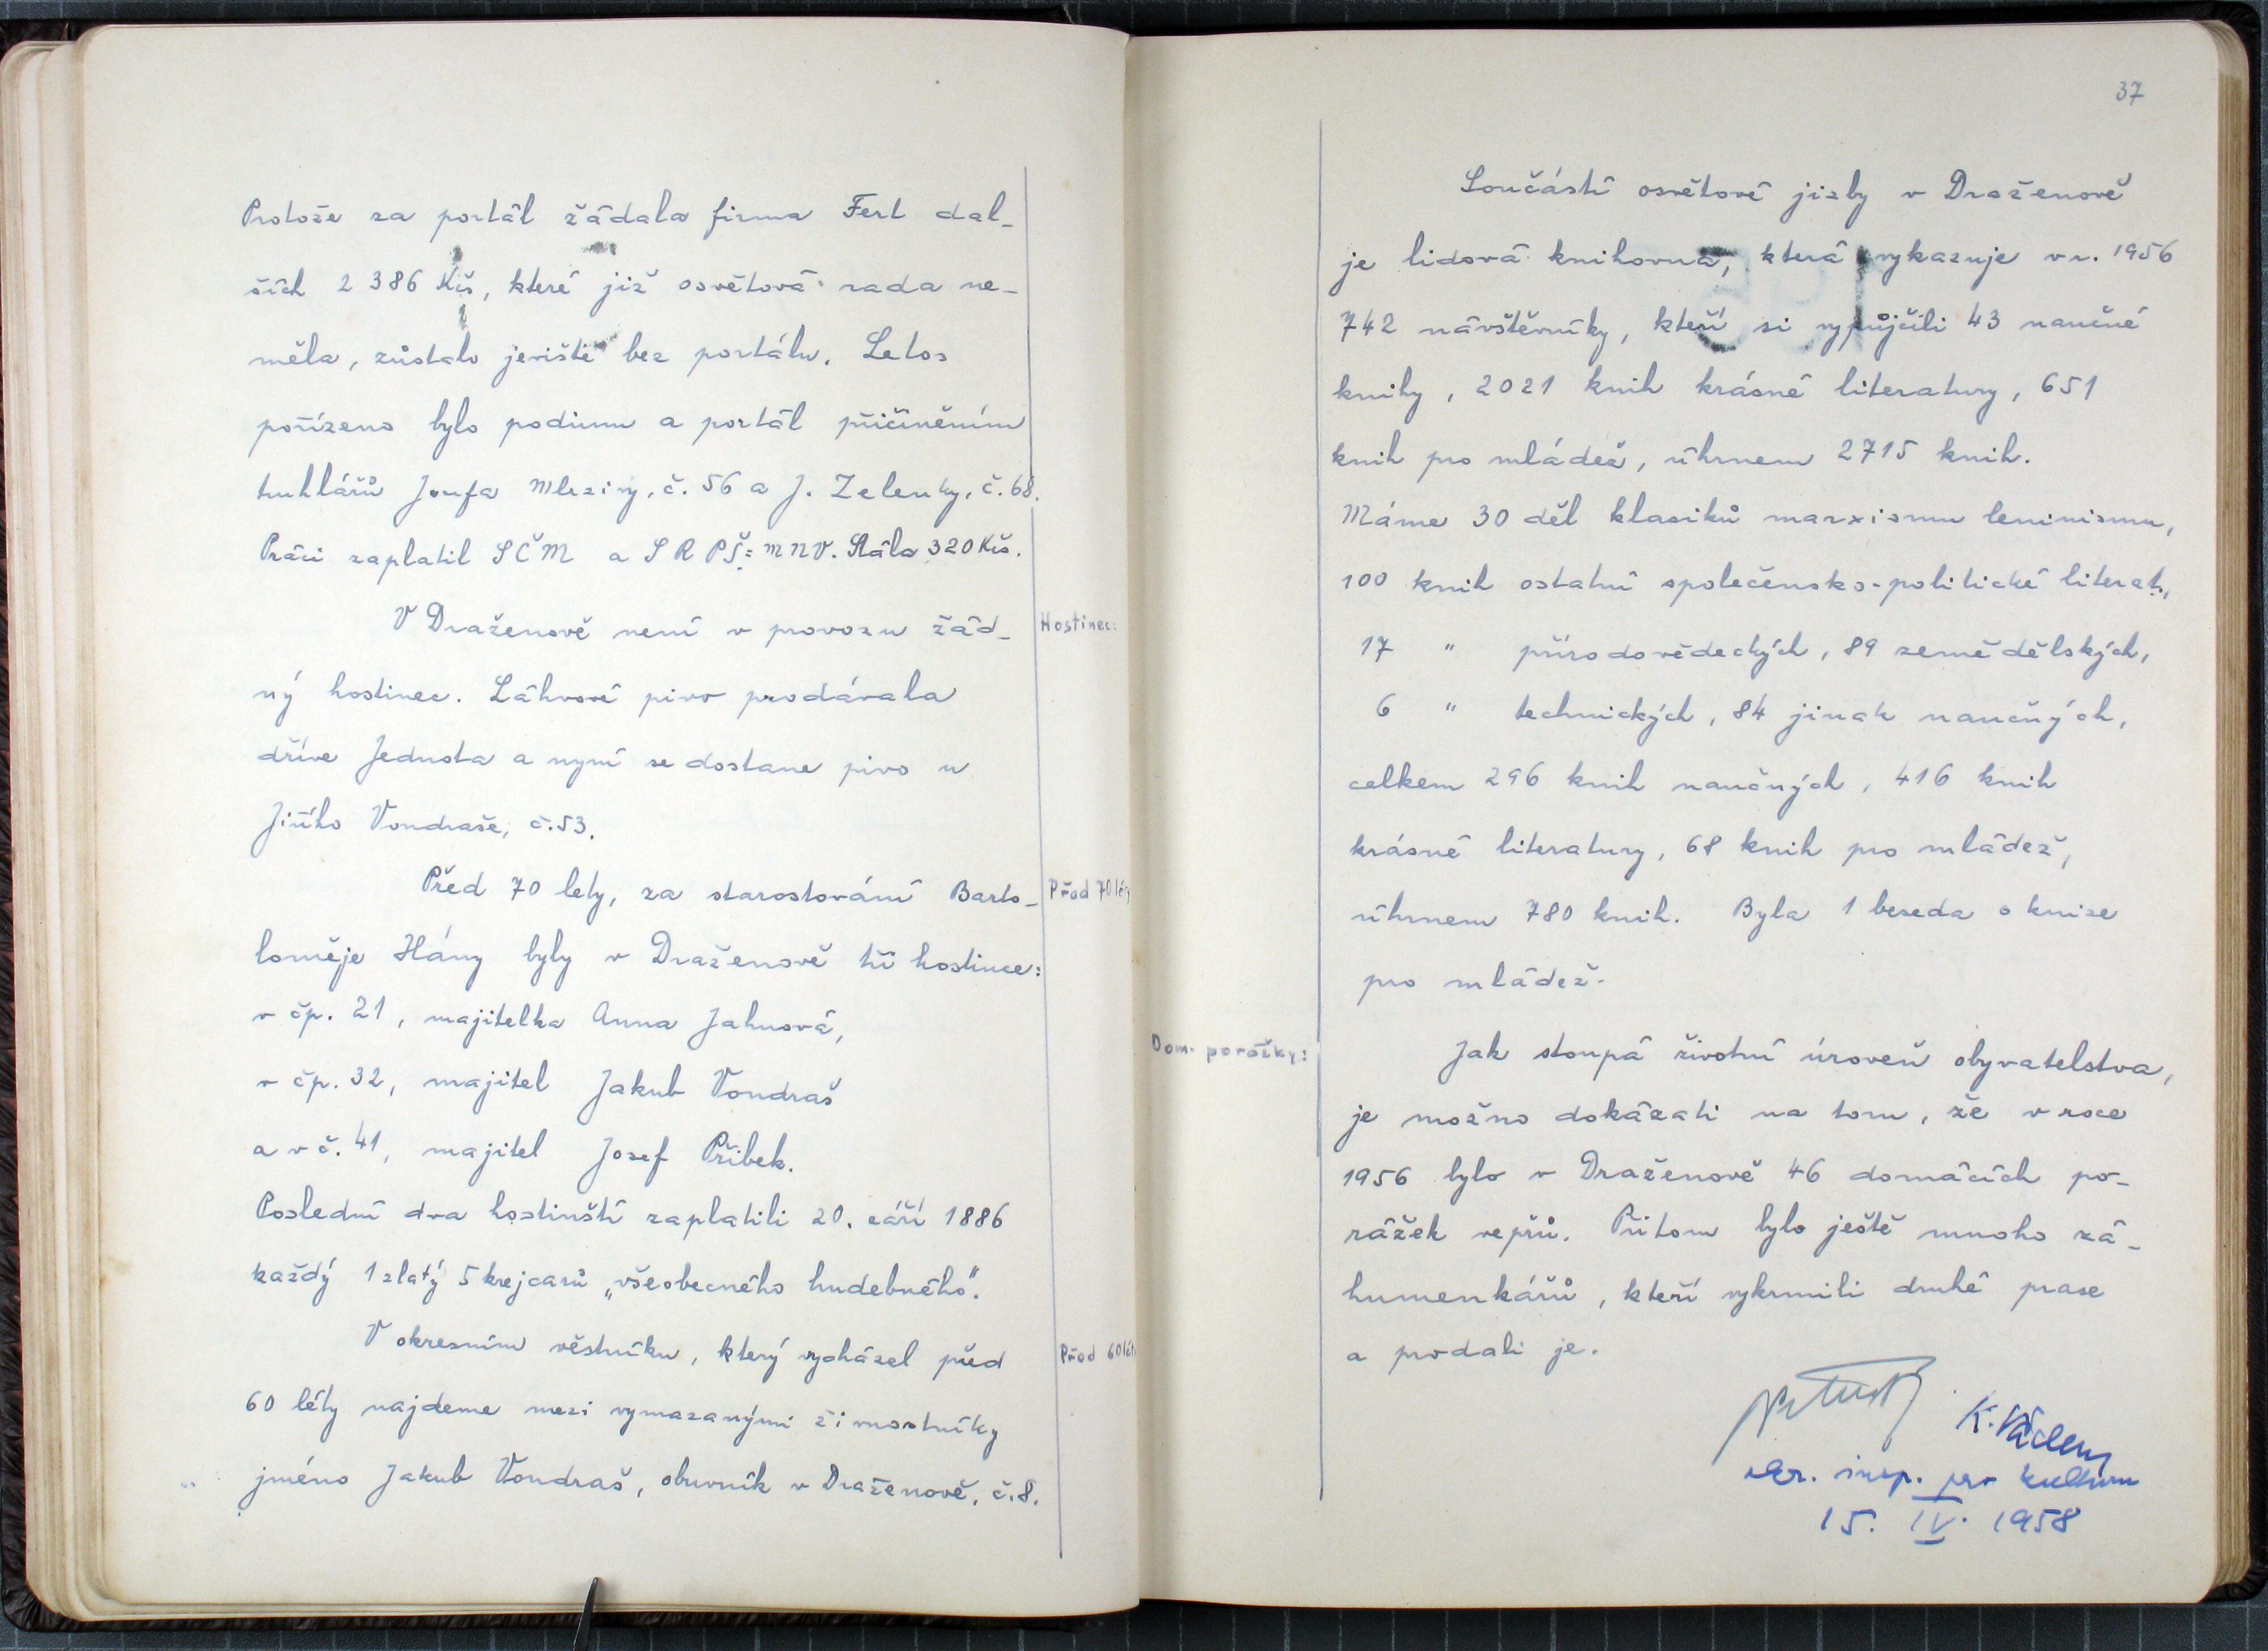 Protože za portál žádala firma Fert dal-
ších 2 386 Kčs, které již osvětová rada ne-
měla, zůstalo jeviště bez portálu. Letos
pořízeno bylo podium a portál přičiněním
truhlářů Josefa Mleziny, č. 56 a J. Zelenky, č. 68.
Práci zaplatil SČM a SRPŠ = MNV. Stála 320 Kčs.
Hostinec:
V Draženově není v provozu žád-
ný hostinec. Láhvové pivo prodávala
dříve Jednota a nyní se dostane pivo u
Jiřího Vondraše, č. 53.
Před 70 léty
Před 70 lety, za starostování Barto-
loměje Hány byly v Draženově tři hostince:
v čp. 21, majitelka Anna Jahnová,
v čp. 32, majitel Jakub Vondraš
a v č. 41, majitel Josef Přibek.
Poslední dva hostinští zaplatili 20. září 1886
každý 1 zlatý 5 krejcarů „všeobecného hudebného".
Před 60 léty
V okresním věstníku, který vycházel před
60 léty najdeme mezi vymazanými živnostníky
jméno Jakub Vondraš, obuvník v Draženově, č. 8.
37
Součástí osvětové jizby v Draženově
je lidová knihovna, která vykazuje v r. 1956
742 návštěvníky, kteří si vypůjčili 43 naučné
knihy, 2021 knih krásné literatury, 651
knih pro mládež, úhrnem 2715 knih.
Máme 30 děl klasiků marxismu leninismu,
100 knih ostatní společensko-politické literat.,
17 " přírodovědeckých, 89 zemědělských,
6 " technických, 84 jinak naučných,
celkem 296 knih naučných, 416 knih
krásné literatury, 68 knih pro mládež,
úhrnem 780 knih. Byla 1 beseda o knize
pro mládež.
Dom. porážky:
Jak stoupá životní úroveň obyvatelstva,
je možno dokázati na tom, že v roce
1956 bylo v Draženově 46 domácích po-
rážek vepřů. Přitom bylo ještě mnoho zá-
humenkářů, kteří vykrmili druhé prase
a prodali je.
K.
okr. insp. pro kulturu
15. IV. 1958